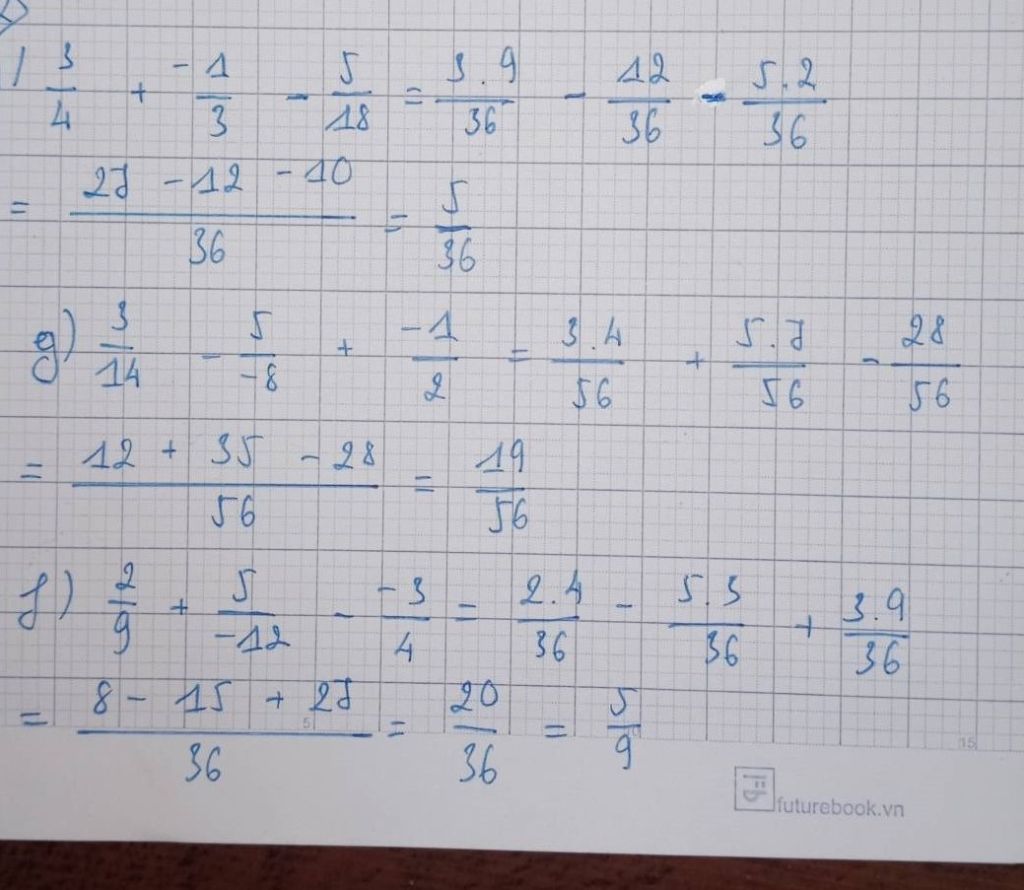 ) 3/4 + -1/3 - 5/18 = 3.9/36 - 12/36 - 5.2/36
= 27 - 12 - 10/36 = 5/36
g) 3/14 - 5/-8 + -1/2 = 3.4/56 + 5.7/56 - 28/56
= 12 + 35 - 28/56 = 19/56
f) 2/9 + 5/-12 - -3/4 = 2.4/36 - 5.3/36 + 3.9/36
= 8 - 15 + 27/36 = 20/36 = 5/9
5
15
futurebook.vn